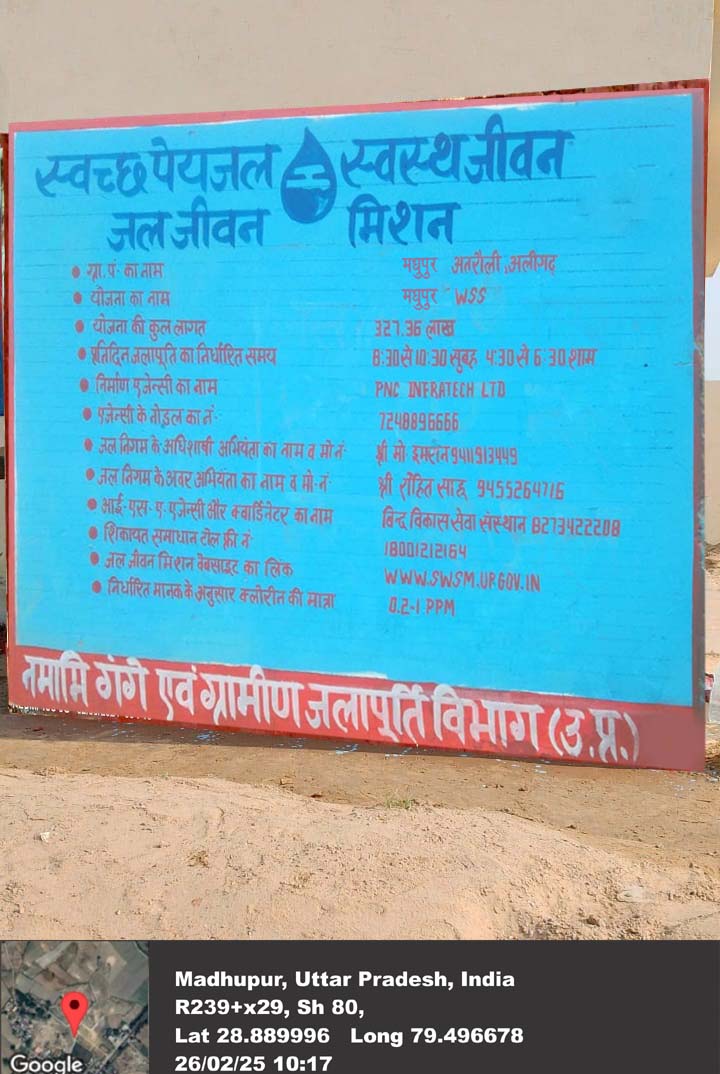 स्वच्छ पेयजल स्वस्थ जीवन
जल जीवन मिशन
• ग्रा.पं. का नाम मधुपुर अतरौली, अलीगढ़
• योजना का नाम मधुपुर WSS
• योजना की कुल लागत 327.36 लाख
• प्रतिदिन जलापूर्ति का निर्धारित समय 8:30 से 10:30 सुबह 4:30 से 6:30 शाम
• निर्माण एजेन्सी का नाम PNC INFRATECH LTD
• एजेन्सी के नोडल का नं. 7248896666
• जल निगम के अधिशाषी अभियंता का नाम व मो.नं. श्री मो इमरान 9411913449
• जल निगम के अवर अभियंता का नाम व मो. नं. श्री रोहित साहू 9455264716
• आई.एस.ए. एजेन्सी और क्वार्डिनेटर का नाम बिन्द विकास सेवा संस्थान 8273422208
• शिकायत समाधान टोल फ्री नं. 18001212164
• जल जीवन मिशन वेबसाइट का लिंक WWW.SWSM.UP.GOV.IN
• निर्धारित मानक के अनुसार क्लोरीन की मात्रा 0.2-1 PPM
नमामि गंगे एवं ग्रामीण जलापूर्ति विभाग (उ.प्र.)
Madhupur, Uttar Pradesh, India
R239+x29, Sh 80,
Lat 28.889996 Long 79.496678
26/02/25 10:17
Google